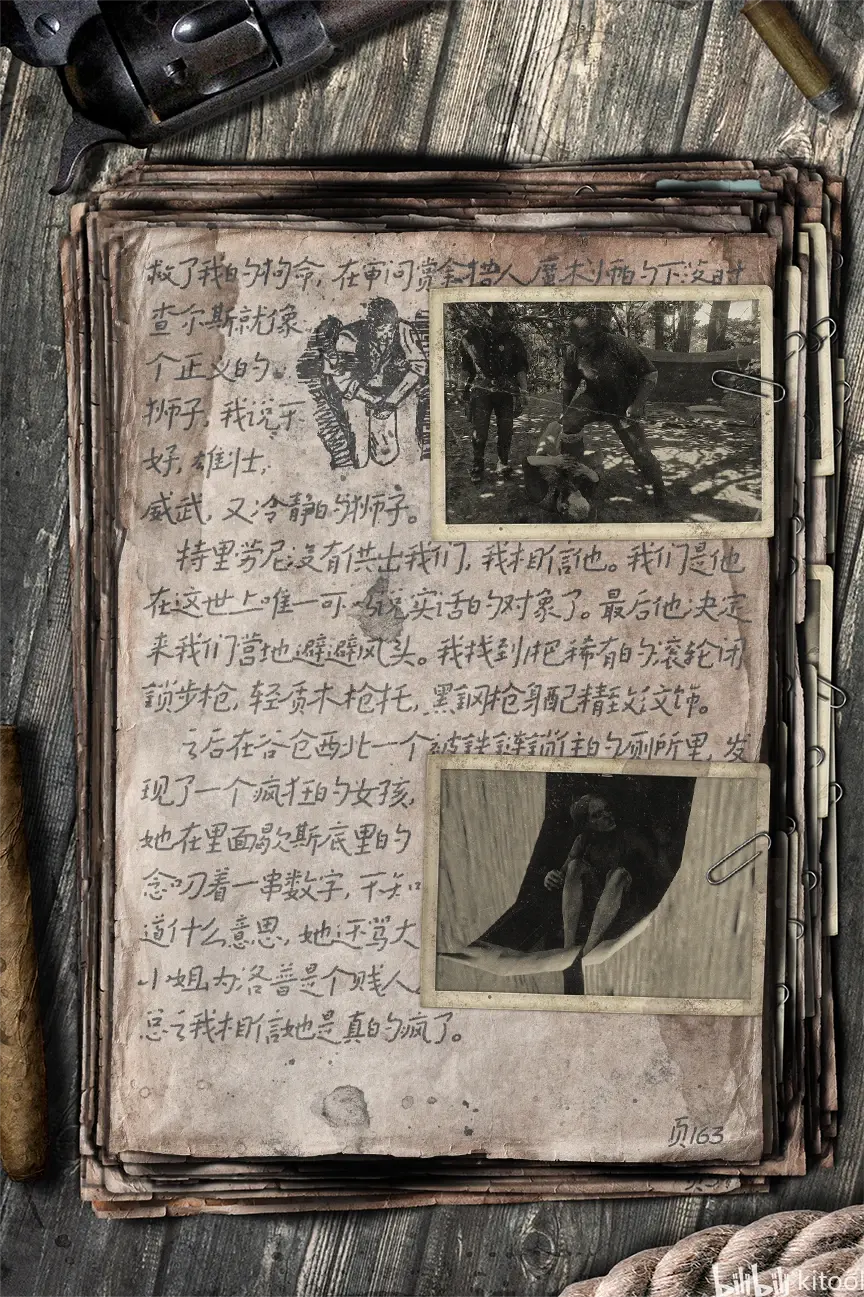 救了我的狗命,在审问赏金猎人魔术师的下没时
查尔斯就像
个正义的
狮子,我说不
好,雄壮,
威武,又冷静的狮子。
特里劳尼没有供出我们,我相信他。我们是他
在这世上唯一可以说实话的对象了。最后他决定
来我们营地避避风头。我找到1把稀有的滚轮闭
锁步枪,轻质木枪托,黑钢枪身配精致纹饰。
之后在谷仓西北一个被铁链锁住的厕所里,发
现了一个疯狂的女孩,
她在里面歇斯底里的
念叨着一串数字,不知
道什么意思,她还骂大
小姐为洛普是个贱人。
总之我相信她是真的疯了。
页163
bilibili kitool